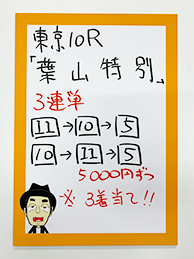 東京10R
「葉山特別」
3連単
11→10→5
10→11→5
5000円ずつ
※3着当て!!